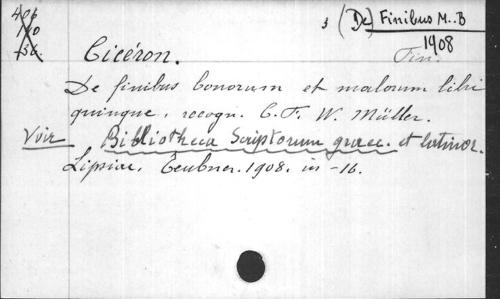 3 (De) Finibus M..B
1908
Cicéron. Fin.
De finibus bonorum et malorum libri
quinque, recogn. C. F. W. Müller.
Voir Bibliotheca Scriptorum graec. et latinor.
Lipsiae, Teubner. 1908. in-16.